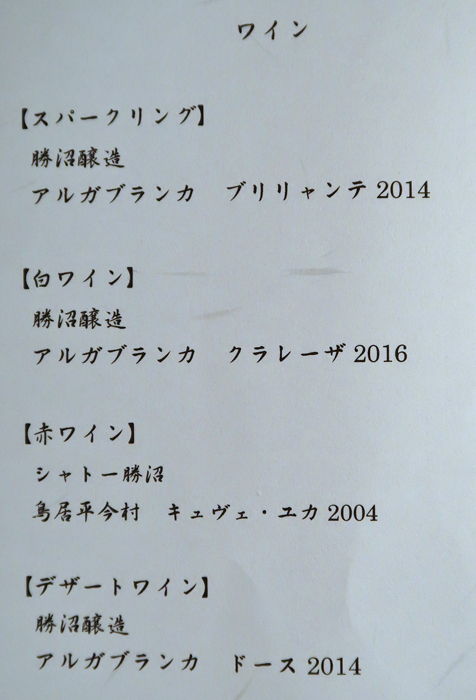 ワイン
【スパークリング】
勝沼醸造
アルガブランカ　ブリリャンテ 2014
【白ワイン】
勝沼醸造
アルガブランカ　クラレーザ 2016
【赤ワイン】
シャトー勝沼
鳥居平今村　キュヴェ・ユカ 2004
【デザートワイン】
勝沼醸造
アルガブランカ　ドース 2014